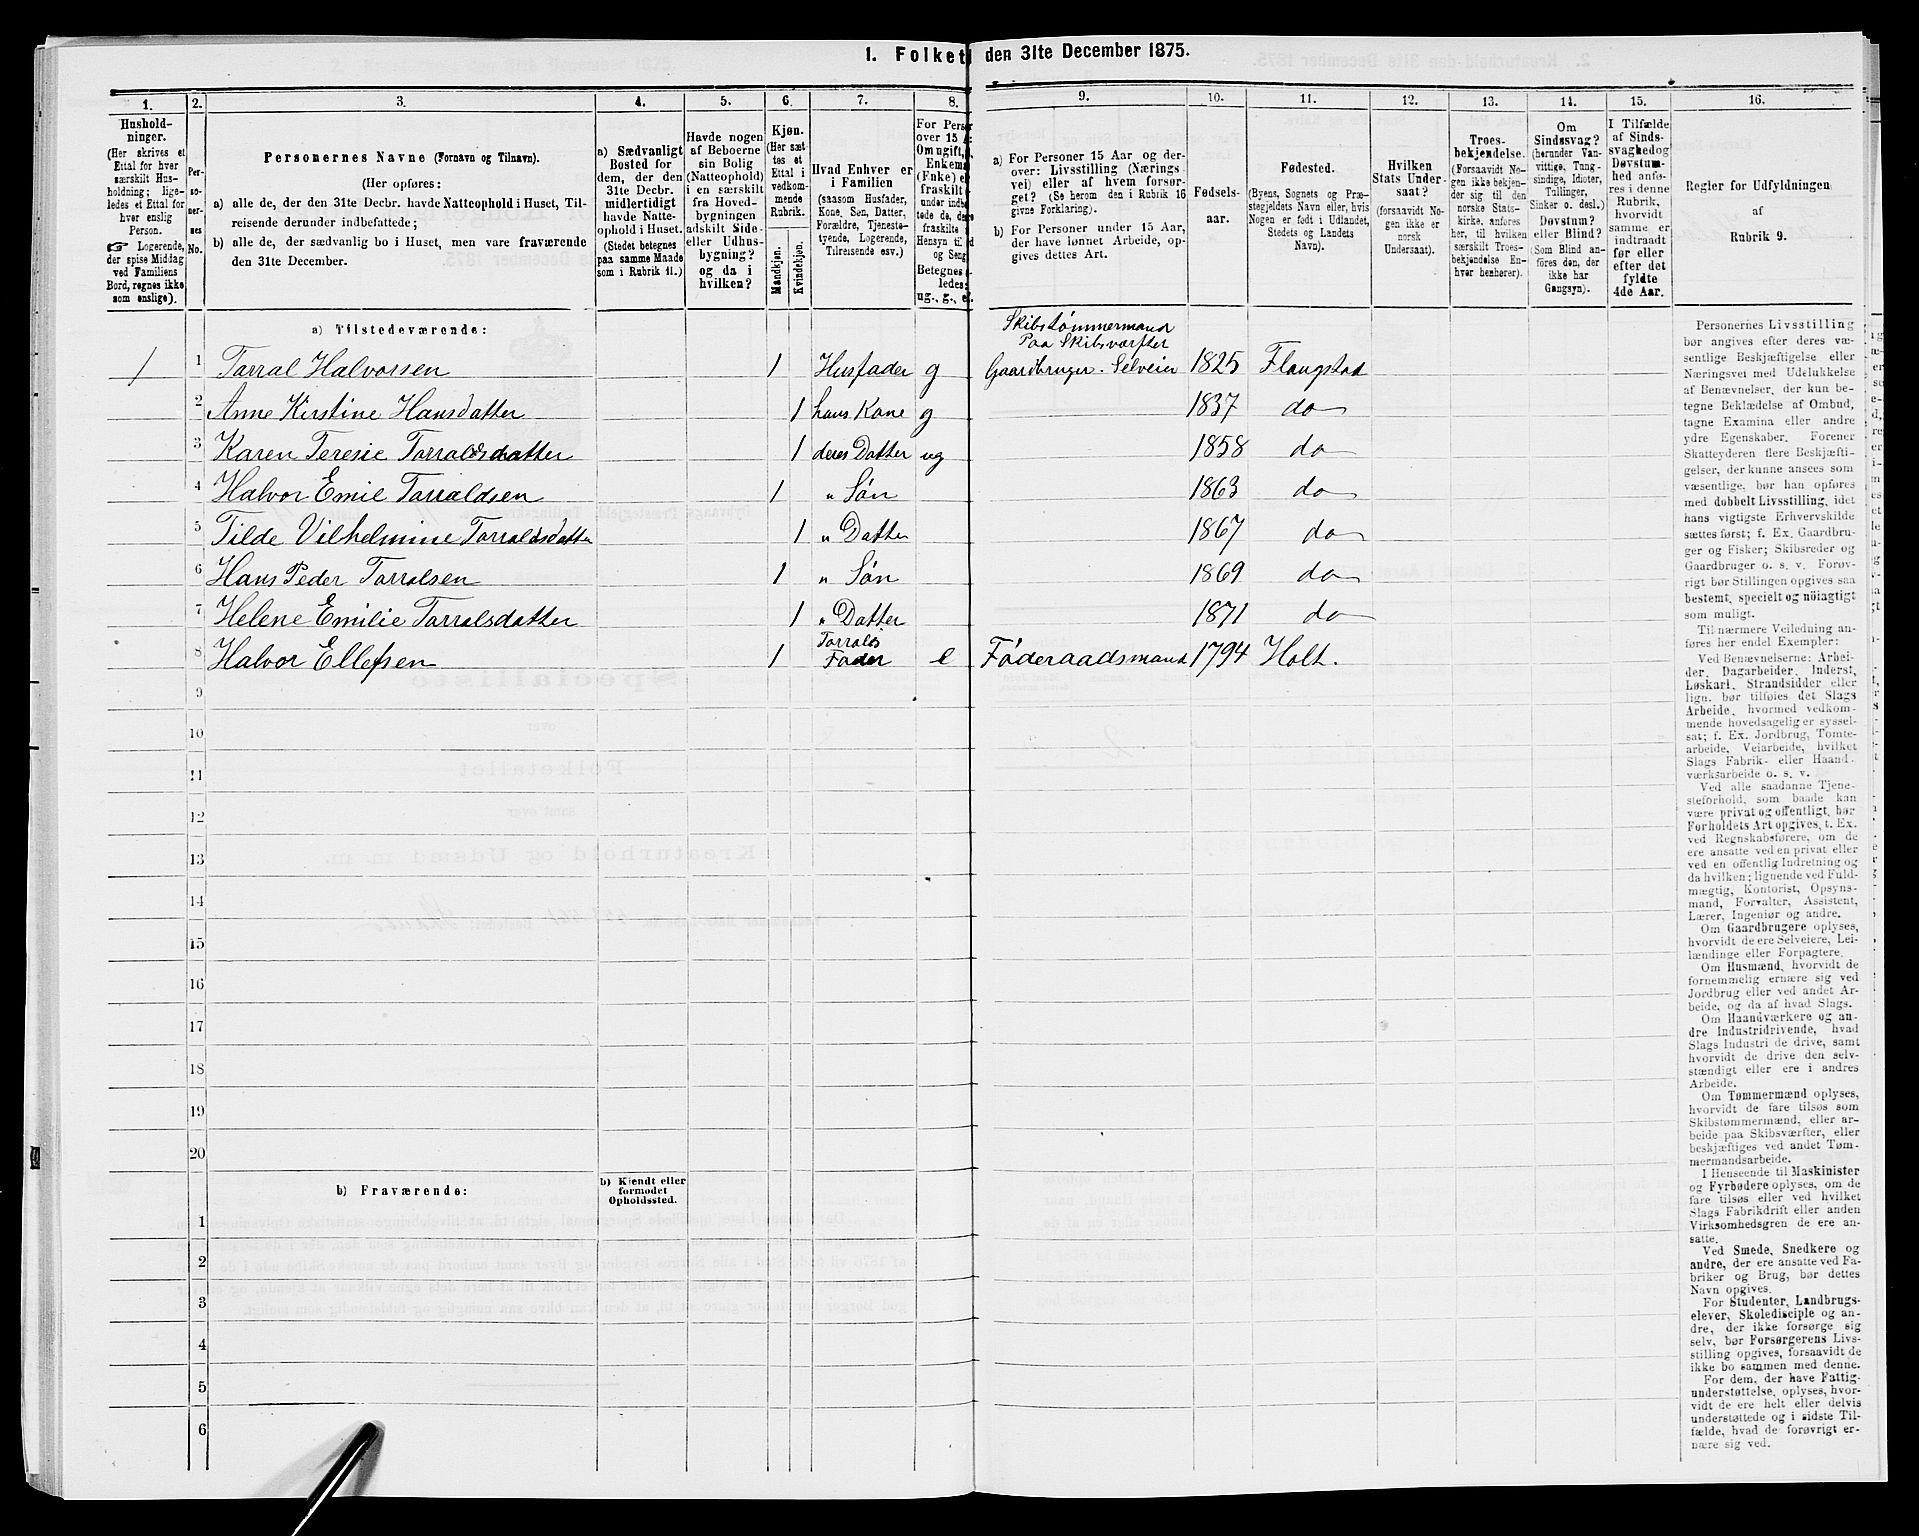 1. Folket den 31te December 1875.
1.
2.
3.
4.
5.
6.
7.
8.
9.
10.
11.
12.
13.
14.
15.
16.
Hushold-
ninger.
(Her skrives et
Ettal for hver
særskilt Hus-
holdning; lige-
ledes et Ettal for
hver enslig
Person.
☞ Logerende,
der spise Middag
ved Familiens
Bord, regnes ikke
som enslige).
Per-
so-
ner-
nes
No.
Personernes Navne (Fornavn og Tilnavn).
(Her opføres:
a) alle de, der den 31te Decbr. havde Natteophold i Huset, Til-
reisende derunder indbefattede;
b) alle de, der sædvanlig bo i Huset, men vare fraværende
den 31te December.
a) Sædvanligt
Bosted for
dem, der den
31te Decbr.
midlertidigt
havde Natte-
ophold i Huset.
(Stedet betegnes
paa samme Maade
som i Rubrik 11.)
Havde nogen
af Beboerne
sin Bolig
(Natteophold)
i en særskilt
fra Hoved-
bygningen
adskilt Side-
eller Udhus-
bygning?
og da i
hvilken?
Kjøn.
(Her sæt-
tes et
Ettal i
vedkom-
mende
Rubrik.
Mandkjøn.
Kvindekjøn.
Hvad Enhver er
i Familien
(saasom Husfader,
Kone, Søn, Datter,
Forældre, Tjeneste-
tyende, Logerende,
Tilreisende osv.)
For Perso
over 15 A
Om ugift,
Enkema
(Enke) e
fraskilt
under indb
tede de, de
fraskilte
Hensyn til
og Seng
Betegnes
ledes:
ug., g., e
a) For Personer 15 Aar og der-
over: Livsstilling (Nærings
vei) eller af hvem forsør-
get? (Se herom den i Rubrik 16
givne Forklaring).
b) For Personer under 15 Aar,
der have lønnet Arbeide, op-
gives dettes Art.
Fødsels-
aar.
Fødested.
(Byens, Sognets og Præ-
stegjeldets Navn eller, hvis
Nogen er født i Udlandet,
Stedets og Landets
Navn).
Hvilken
Stats Under-
saat?
(forsaavidt No-
gen ikke er
norsk
Undersaat).
Troes-
bekjendelse.
(Forsaavidt No-
gen ikke bekjen-
der sig til den
norske Stats-
kirke, anføres
her, til hvilken
særskilt Troes-
bekjendelse En-
hver henhører).
Om
Sindssvag?
(herunder Van-
vittige, Tung-
sindige, Idioter,
Tullinger,
Sinker o. desl.)
Døvstum?
eller Blind?
(Som Blind an-
føres den, der
ikke har
Gangsyn).
I Tilfælde
af Sinds-
svaghed og
Døvstum-
hed anfø-
res i denne
Rubrik,
hvorvidt
samme er
indtraadt
før eller
efter det
fyldte
4de Aar.
Regler for Udfyldningen
af
Rubrik 9.
a) Tilstedeværende:
Skibstømmermand
Paa Skibsværfter
1 1 Tarral Halvorsen 1 Husfader g Gaardbruger. Selveier 1825 Flangstad
2 Anne Kirstine Hansdatter 1 hans Kone g 1837 do
3 Karen Teresie Tarraldsdatter 1 deres Datter ug 1858 do
4 Halvor Emil Tarraldsen 1 " Søn 1863 do
5 Tilde Vilhelmine Tarraldsdatter 1 " Datter 1867 do
6 Hans Peder Tarralsen 1 " Søn 1869 do
7 Helene Emilie Tarralsdatter 1 " Datter 1871 do
8 Halvor Ellefsen 1 Tarrals Fader e Føderaadsmand 1794 Holt.
9
10
11
12
13
14
15
16
17
18
19
20
b) Fraværende:
b) Kjendt eller
formodet
Opholdssted.
1
2
3
4
5
6
Personernes Livsstilling
bør angives efter deres væ-
sentlige Beskjæftigelse eller
Næringsvei med Udelukkelse
af Benævnelser, der kun be-
tegne Beklædelse af Ombud,
tagne Examina eller andre
ydre Egenskaber. Forener
Skatteyderen flere Beskjæfti-
gelser, der kunne ansees som
væsentlige, bør han opføres
med dobbelt Livsstilling, idet
hans vigtigste Erhvervskilde
sættes først; f. Ex. Gaardbru-
ger og Fisker; Skibsreder og
Gaardbruger o. s. v. Forøv-
rigt bør Stillingen opgives saa
bestemt, specielt og nöiagtigt
som muligt.
Til nærmere Veiledning an-
føres her endel Exempler:
Ved Benævnelserne: Arbei-
der, Dagarbeider, Inderst,
Løskarl, Strandsidder eller
lign. bør tilføies det Slags
Arbeide, hvormed vedkom-
mende hovedsagelig er syssel-
sat; f. Ex. Jordbrug, Tomte-
arbeide, Veiarbeide, hvilket
Slags Fabrik- eller Haand-
værksarbeide o. s. v.
Ved alle saadanne Tjene-
steforhold, som baade kan
være privat og offentligt, bør
Forholdets Art opgives, t. Ex.
ved Regnskabsførere, om de
ere ansatte ved en privat eller
ved en offentlig Indretning og
da hvilken; lignende ved Fuld-
mægtig, Kontorist, Opsyns-
mand, Forvalter, Assistent,
Lærer, Ingeniør og andre.
Om Gaardbrugere oplyses,
hvorvidt de ere Selveiere, Lei-
lændinge eller Forpagtere.
Om Husmænd, hvorvidt de
fornemmelig ernære sig ved
Jordbrug eller ved andet Ar-
beide, og da af hvad Slags.
Om Haandværkere og an-
dre Industridrivende, hvad
Slags Industri de drive, samt
hvorvidt de drive den selv-
stændigt eller ere i andres
Arbeide.
Om Tømmermænd oplyses,
hvorvidt de fare tilsøs som
Skibstømmermænd, eller ar-
beide paa Skibsværfter, eller
beskjæftiges ved andet Tøm-
mermandsarbeide.
I Henseende til Maskinister
og Fyrbødere oplyses, om de
fare tilsøs eller ved hvilket
Slags Fabrikdrift eller anden
Virksomhedsgren de ere an-
satte.
Ved Smede, Snedkere og
andre, der ere ansatte ved Fa-
briker og Brug, bør dettes
Navn opgives.
For Studenter, Landbrugs-
elever, Skoledisciple og an-
dre, der ikke forsørge sig
selv, bør Forsørgerens Livs-
stilling opgives, forsaavidt de
ikke bo sammen med denne.
For dem, der have Fattig-
understøttelse, oplyses, hvor-
vidt de ere helt eller delvis
understøttede og i sidste Til-
fælde, hvad de forøvrigt er-
nære sig ved.